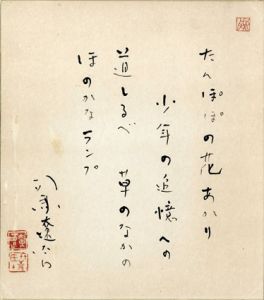 たんぽぽの花あかり
少年の追憶への
道しるべ 草のなかの
ほのかなランプ
司馬遼太郎